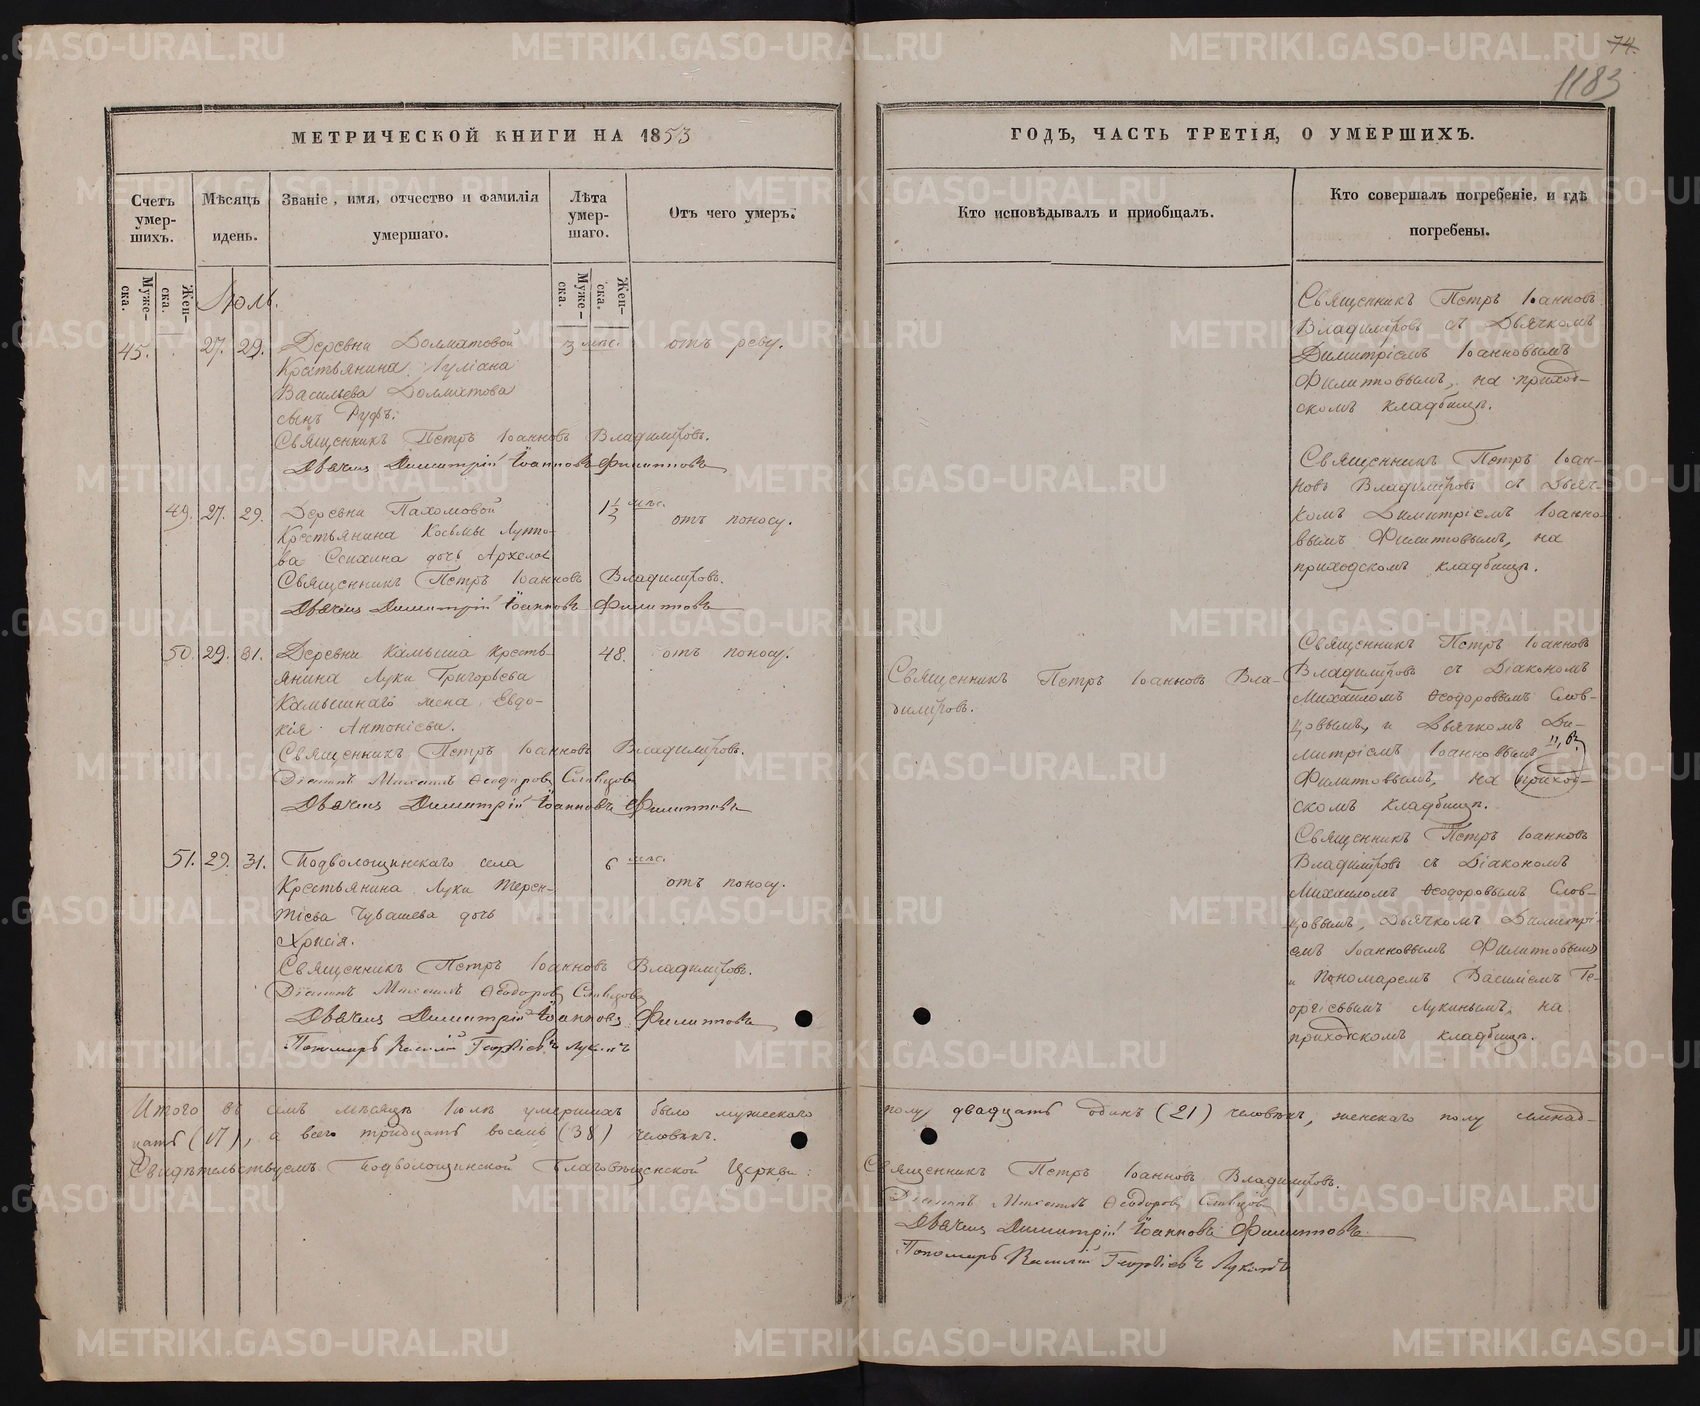 74.
1183
МЕТРИЧЕСКОЙ КНИГИ НА 1853
ГОДЪ, ЧАСТЬ ТРЕТІЯ, О УМЕРШИХЪ.
Счетъ умер-шихъ.
Мѣсяцъ идень.
Званіе, имя, отчество и фамилія умершаго.
Лѣта умер-шаго.
Отъ чего умеръ.
Кто исповѣдывалъ и пріобщалъ.
Кто совершалъ погребеніе, и гдѣ погребены.
Муже-ска.
Жен-ска.
Муже-ска.
Жен-ска.
Іюль.
45. 27. 29.
Деревни Долматовой
Крестьянина
Васильева Долматова
сынъ Руфъ.
3 мѣс. отъ реву.
Священникъ Петръ Іоанновъ Владиміровъ.
Дьячекъ Димитрій Іоанновъ Филипповъ
Священникъ Петръ Іоанновъ
Владиміровъ съ Дьячкомъ
Димитріемъ Іоанновымъ
Филиповымъ, на приход-
скомъ кладбищѣ.
49. 27. 29.
Деревни Пахомовой
Крестьянина Косьмы Луппо-
ва дочь
1½ мѣс. отъ поносу.
Священникъ Петръ Іоанновъ Владиміровъ.
Дьячекъ Димитрій Іоанновъ Филипповъ
Священникъ Петръ Іоан-
новъ Владиміровъ съ Дьяч-
комъ Димитріемъ Іоанно-
вымъ Филиповымъ, на
приходскомъ кладбищѣ.
50. 29. 31.
Деревни Камыша Кресть-
янина Луки Григорьева
Камышнаго жена Евдо-
кія Антоніева.
48. отъ поносу.
Священникъ Петръ Іоанновъ Владиміровъ.
Діаконъ Михаилъ Ѳеодоровъ Словцовъ
Дьячекъ Димитрій Іоанновъ Филипповъ
Священникъ Петръ Іоанновъ Вла-
диміровъ.
Священникъ Петръ Іоанновъ
Владиміровъ съ Діакономъ
Михаиломъ Ѳеодоровымъ Слов-
цовымъ, и Дьячкомъ Ди-
митріемъ Іоанновымъ
Филиповымъ, на приход-
скомъ кладбищѣ.
51. 29. 31.
Подволошинскаго села
Крестьянина Луки Терен-
тіева Чувашева дочь
Хрисія.
6 мѣс. отъ поносу.
Священникъ Петръ Іоанновъ Владиміровъ.
Діаконъ Михаилъ Ѳеодоровъ Словцовъ
Дьячекъ Димитрій Іоанновъ Филипповъ
Пономарь Василій Георгіевъ Лукинъ
Священникъ Петръ Іоанновъ
Владиміровъ съ Діакономъ
Михаиломъ Ѳеодоровымъ Слов-
цовымъ, Дьячкомъ Димитрі-
емъ Іоанновымъ Филиповымъ
и Пономаремъ Василіемъ Ге-
оргіевымъ Лукинымъ, на
приходскомъ кладбищѣ.
Итого въ семъ мѣсяцѣ Іюлѣ умершихъ было мужескаго полу двадцать одинъ (21) человѣкъ, женскаго полу семнад-
цать (17), а всего тридцать восемь (38) человѣкъ.
Свидѣтельствуемъ Подволошинской Благовѣщенской Церкви:
Священникъ Петръ Іоанновъ Владиміровъ.
Діаконъ Михаилъ Ѳеодоровъ Словцовъ
Дьячекъ Димитрій Іоанновъ Филипповъ
Пономарь Василій Георгіевъ Лукинъ
METRIKI.GASO-URAL.RU